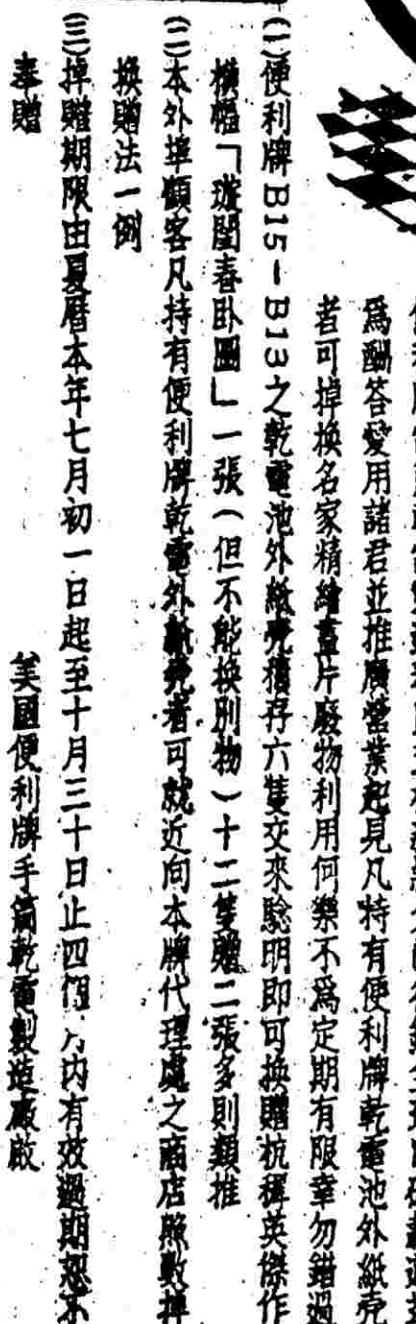 爲酬答愛用諸君並推廣營業起見凡持有便利牌乾電池外紙壳
者可掉換名家精繪畫片廢物利用何樂不爲定期有限幸勿錯過
(一)便利牌B15－B13之乾電池外紙壳積存六隻交來驗明即可換贈杭穉英傑作
橫幅「璇閨春卧圖」一張(但不能換別物)十二隻贈二張多則類推
(二)本外埠顧客凡持有便利牌乾電外紙壳者可就近向本牌代理處之商店照數掉
換贈法一例
(三)掉贈期限由夏曆本年七月初一日起至十月三十日止四個月内有效過期恕不
奉贈
美國便利牌手筒乾電製造廠啟